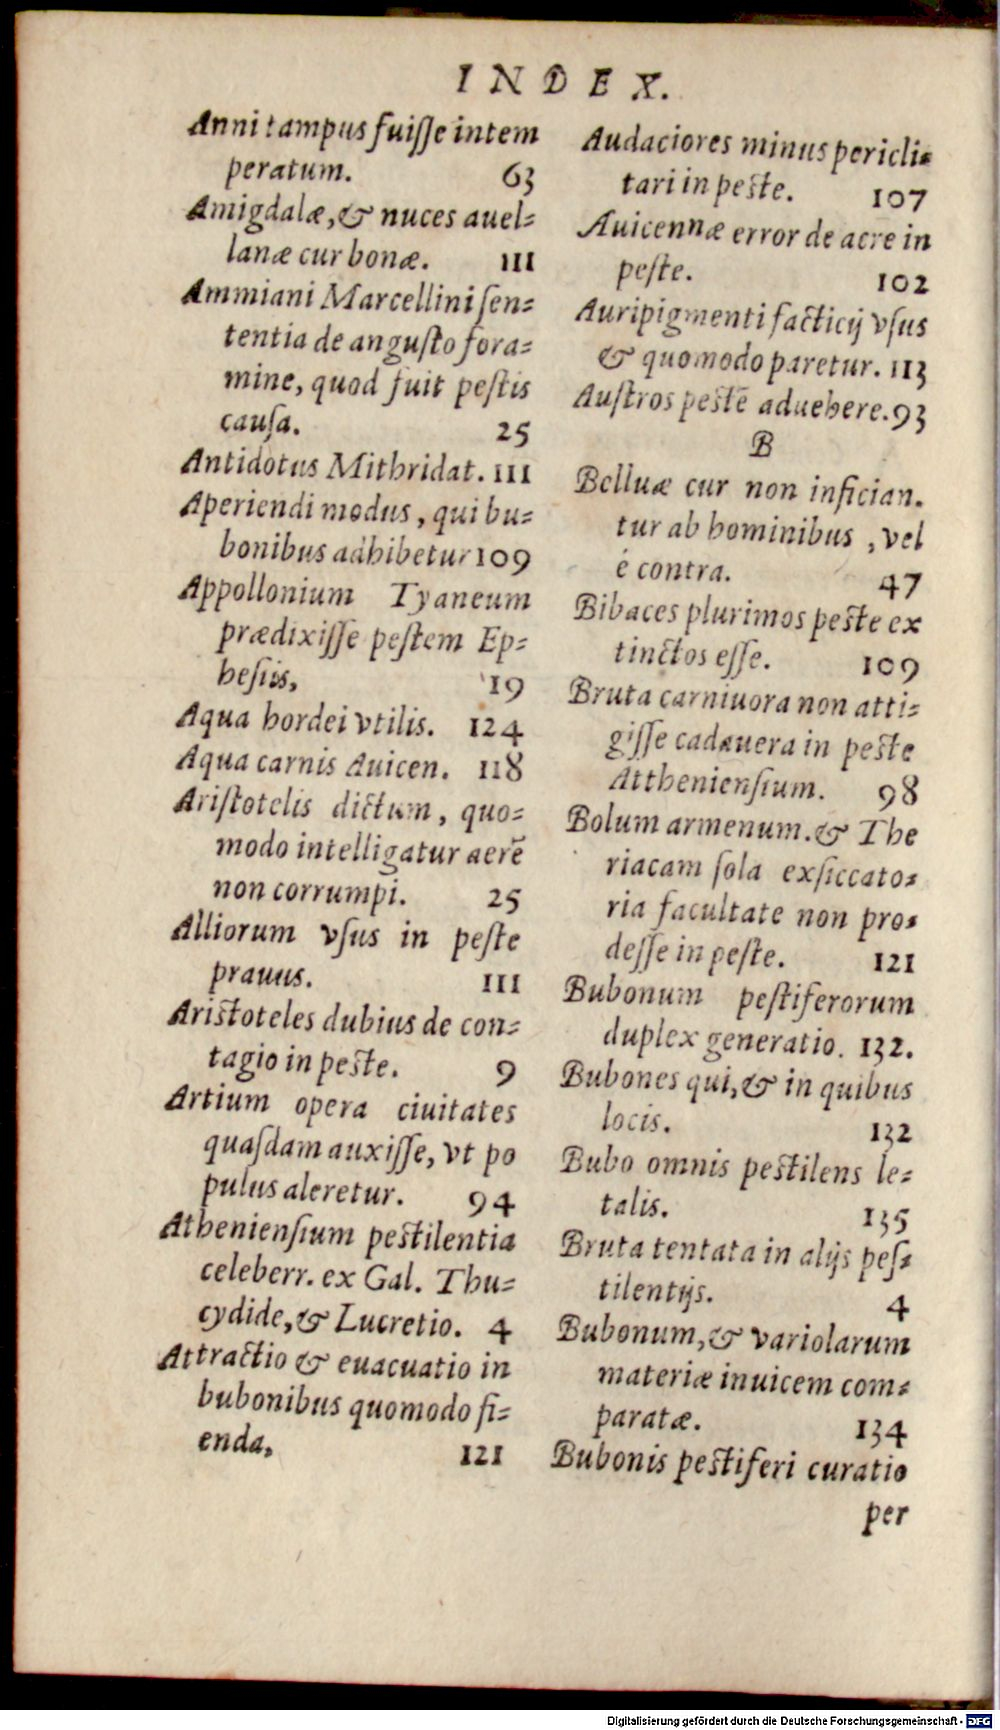 INDEX.
Anni tampus fuiſſe intem
peratum. 63
Amigdalæ, & nuces auel=
lanæ cur bonæ. 111
Ammiani Marcellini ſen=
tentia de anguſto fora=
mine, quod fuit peſtis
cauſa. 25
Antidotus Mithridat. 111
Aperiendi modus, qui bu=
bonibus adhibetur 109
Appollonium Tyaneum
prædixiſſe peſtem Ep=
heſiis, 19
Aqua hordei vtilis. 124
Aqua carnis Auicen. 118
Ariſtotelis dictum, quo=
modo intelligatur aerē
non corrumpi. 25
Alliorum vſus in peſte
prauus. 111
Ariſtoteles dubius de con=
tagio in peſte. 9
Artium opera ciuitates
quaſdam auxiſſe, vt po
pulus aleretur. 94
Athenienſium peſtilentia
celeberr. ex Gal. Thu=
cydide, & Lucretio. 4
Attractio & euacuatio in
bubonibus quomodo fi=
enda, 121
Audaciores minus pericli=
tari in peſte. 107
Auicennæ error de acre in
peſte. 102
Auripigmenti facticij vſus
& quomodo paretur. 113
Auſtros peſtē aduehere. 93
B
Belluæ cur non infician.
tur ab hominibus, vel
é contra. 47
Bibaces plurimos peſte ex
tinctos eſſe. 109
Bruta carniuora non atti=
giſſe cadauera in peſte
Atthenienſium. 98
Bolum armenum. & The
riacam ſola exſiccato=
ria facultate non pro=
deſſe in peſte. 121
Bubonum peſtiferorum
duplex generatio. 132.
Bubones qui, & in quibus
locis. 132
Bubo omnis peſtilens le=
talis. 135
Bruta tentata in alijs peſ=
tilentijs. 4
Bubonum, & variolarum
materiæ inuicem com=
paratæ. 134
Bubonis peſtiferi curatio
per
Digitalisierung gefördert durch die Deutsche Forschungsgemeinschaft - DFG